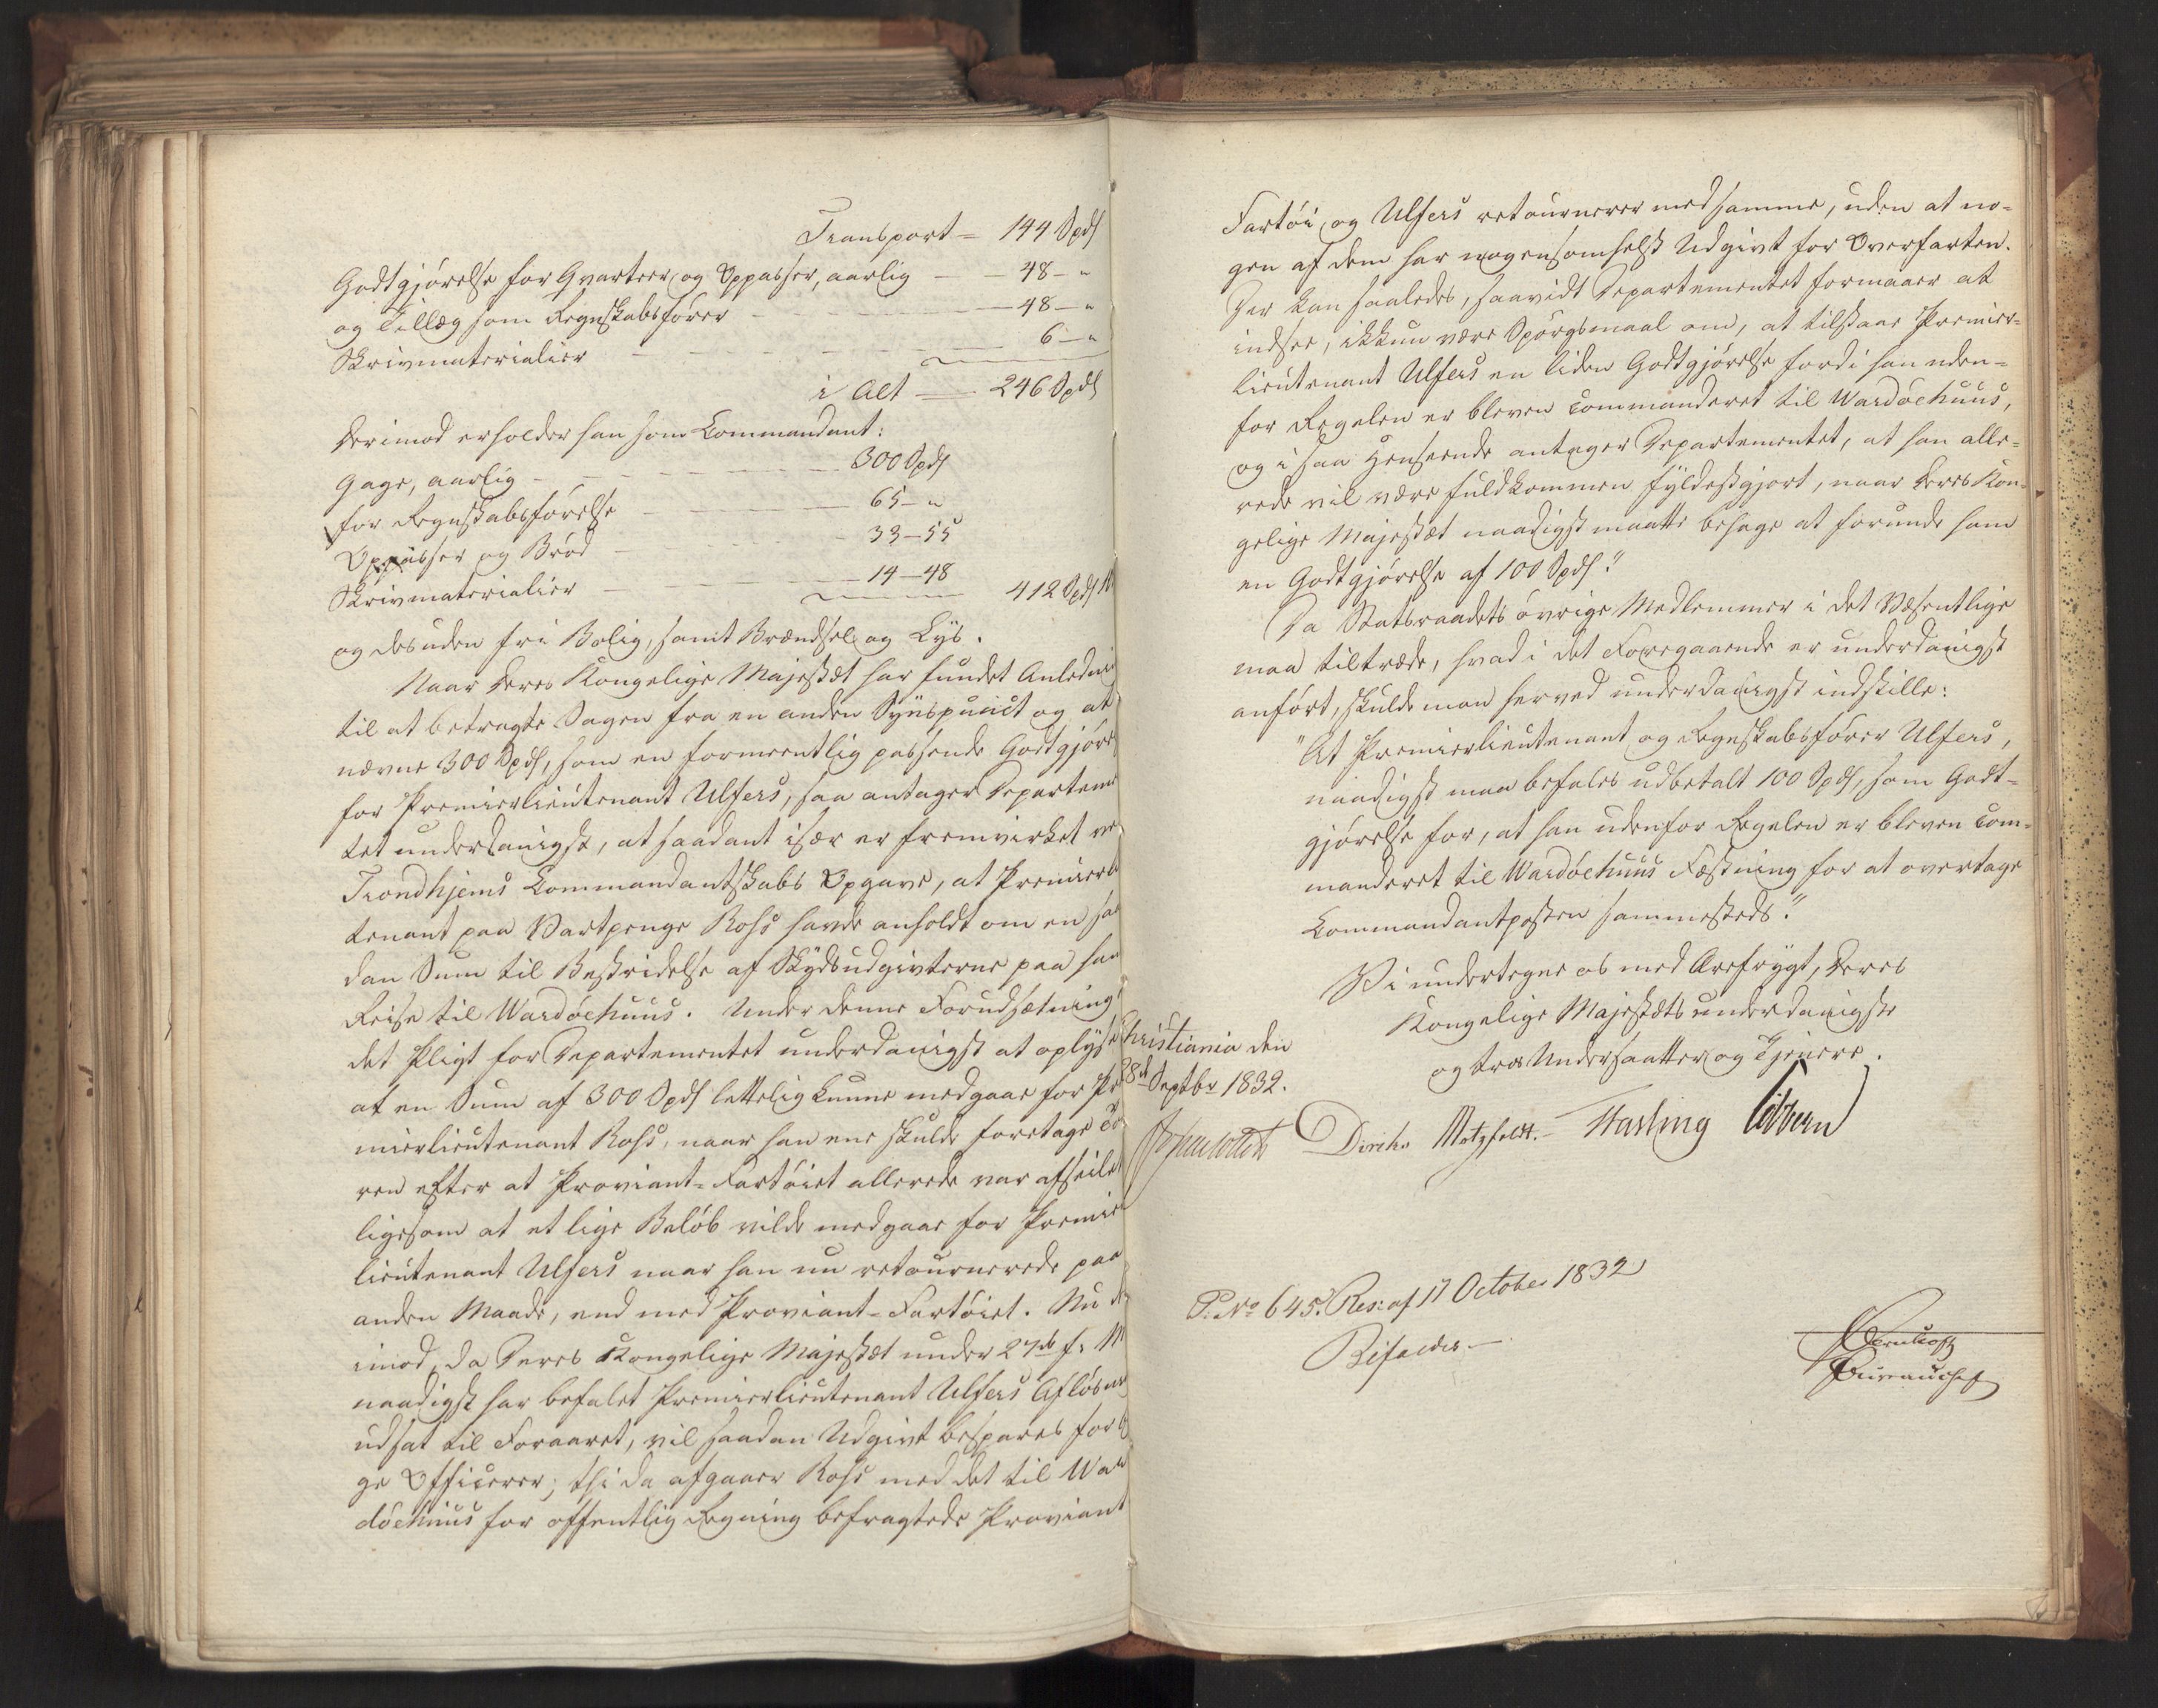 Transport = 144 Spd
Godtgjørelse for Qvarteer og Oppasser, aarlig — 48 – "
og Tillæg som Regnskabsfører — 48 – "
Skrivmaterialier — 6 – "
i Alt — 246 Spd
Derimod erholder han som Commandant:
Gage, aarlig — 300 Spd
for Regnskabsførelse — 65 – "
Oppasser og Brød — 33 – 55
Skrivmaterialier — 14 – 48
412 Spd
og desuden fri Bolig, samt Brændsel og Lys.
Naar Deres Kongelige Majestæt har fundet Anledni
til at betragte Sagen fra en anden Synspunct og at
nævne 300 Spd, som en formeentlig passende Godtgjøre
for Premierlieutenant Ulfers, saa antager Departeme
tet underdanigst, at saadant især er fremvirket ve
Trondhjems Commandantskabs Opgave, at Premierl
tenant paa Vartpenge Rohs havde anholdt om en saa
dan Sum til Bestridelse af Skydsudgivterne paa han
Reise til Wardøehuus. Under denne Forudsætning
det Pligt for Departementet underdanigst at oplyse
at en Sum af 300 Spd lettelig kunne medgaae for Pre
mierlieutenant Rohs, naar han ene skulde foretage To
ren efter at Proviant-Fartøiet allerede var afseile
ligesom at et lige Beløb vilde medgaae for Premier
lieutenant Ulfers naar han nu retournerede paa
anden Maade, end med Proviant-Fartøiet. Nu de
imod, da Deres Kongelige Majestæt under 27de f: M
naadigst har befalet Premierlieutenant Ulfers Afløsn
udsat til Foraaret, vil saadan Udgivt bespares for b
ge Officerer; thi da afgaaer Rohs med det til War
døehuus for offentlig Regning befragtede Proviant
Fartøi og Ulfers retournerer med samme, uden at no-
gen af dem har nogensomhelst Udgivt for Overfarten.
Der kan saaledes, saavidt Departementet formaaer at
indsee, ikkun være Spørgsmaal om, at tilstaae Premier-
lieutenant Ulfers en liden Godtgjørelse fordi han uden-
for Regelen er bleven commanderet til Wardøehuus,
og i saa Henseende antager Departementet, at han alle-
rede vil være fuldkommen fyldestgjort, naar Deres Kon-
gelige Majestæt naadigst maatte behage at forunde ham
en Godtgjørelse af 100 Spd."
Da Statsraadets øvrige Medlemmer i det Væsentlige
maa tiltræde, hvad i det Foregaaende er underdanigst
anført, skulde man herved underdanigst indstille:
"At Premierlieutenant og Regnskabsfører Ulfers,
naadigst maa befales udbetalt 100 Spd, som Godt-
gjørelse for, at han udenfor Regelen er bleven com-
manderet til Wardøehuus Fæstning for at overtage
Commandantposten sammesteds."
Vi undertegne os med Ærefrygt, Deres
Kongelige Majestæts underdanigste
og troe Undersaatter og Tjenere.
Christiania den
28de Septbr 1832.
Diriks Motzfeldt. Fasting Vibe
P: No 645. Res: af 17 October 1832
Bifaldes.—
Bureauchef